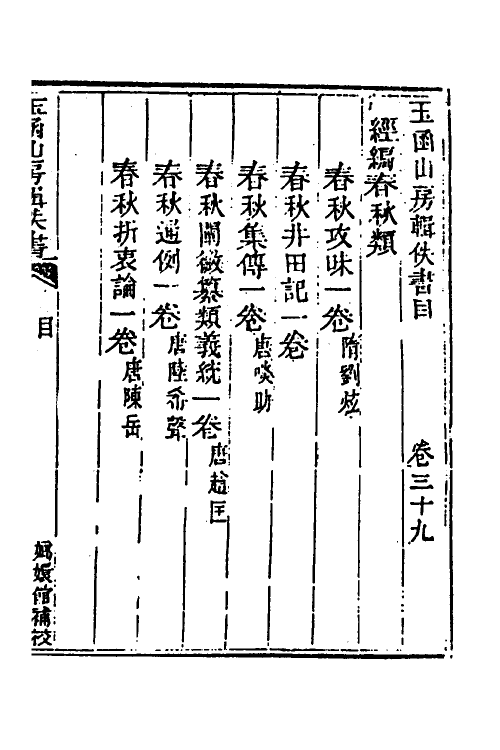 玉函山房輯佚書目 卷三十九
經編春秋類
春秋攻昧一卷 隋劉炫
春秋井田記一卷
春秋集傳一卷 唐啖助
春秋闡微纂類義統一卷 唐趙匡
春秋通例一卷 唐陸希聲
春秋折衷論一卷 唐陳岳
玉函山房輯佚書 目 嫏嬛館補校